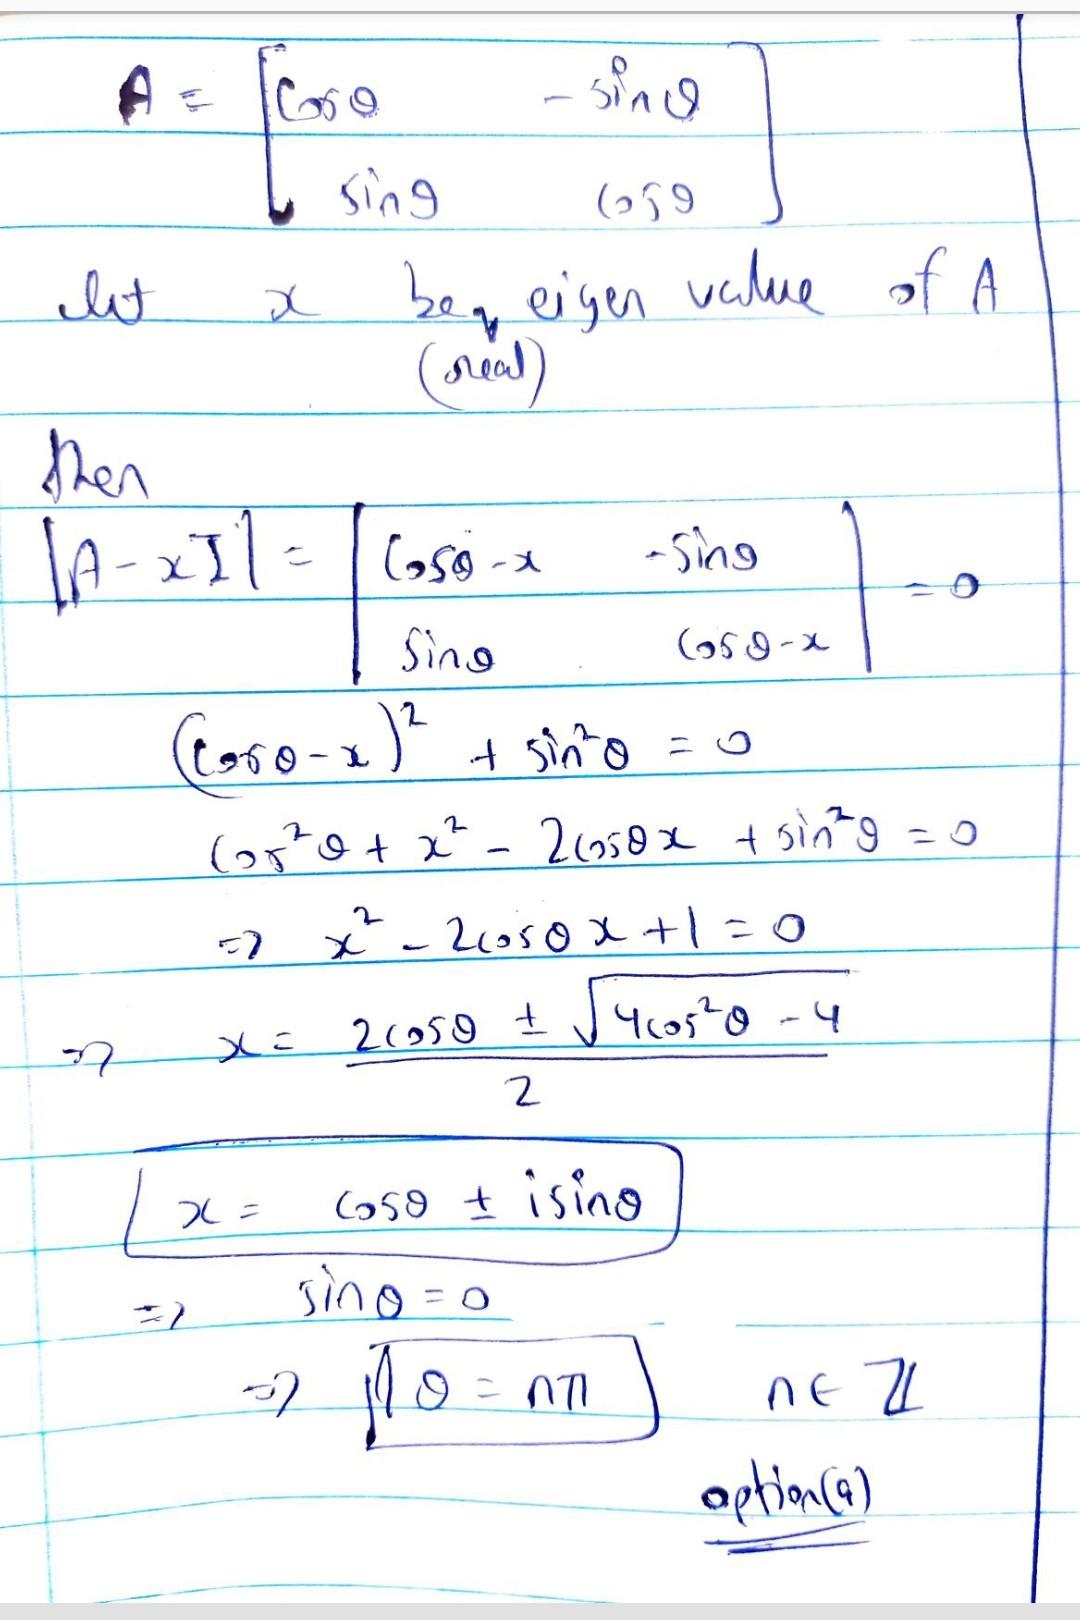 A = [cosθ -sinθ
sinθ cosθ]
let x be eigen value of A
(real)
then
|A-xI| = |cosθ-x -sinθ
sinθ cosθ-x| = 0
(cosθ-x)² + sin²θ = 0
cos²θ + x² - 2cosθx + sin²θ = 0
=> x² - 2cosθx + 1 = 0
=> x = 2cosθ ± √4cos²θ - 4
2
x = cosθ ± isinθ
=> sinθ = 0
=> θ = nπ n∈ℤ
option(a)